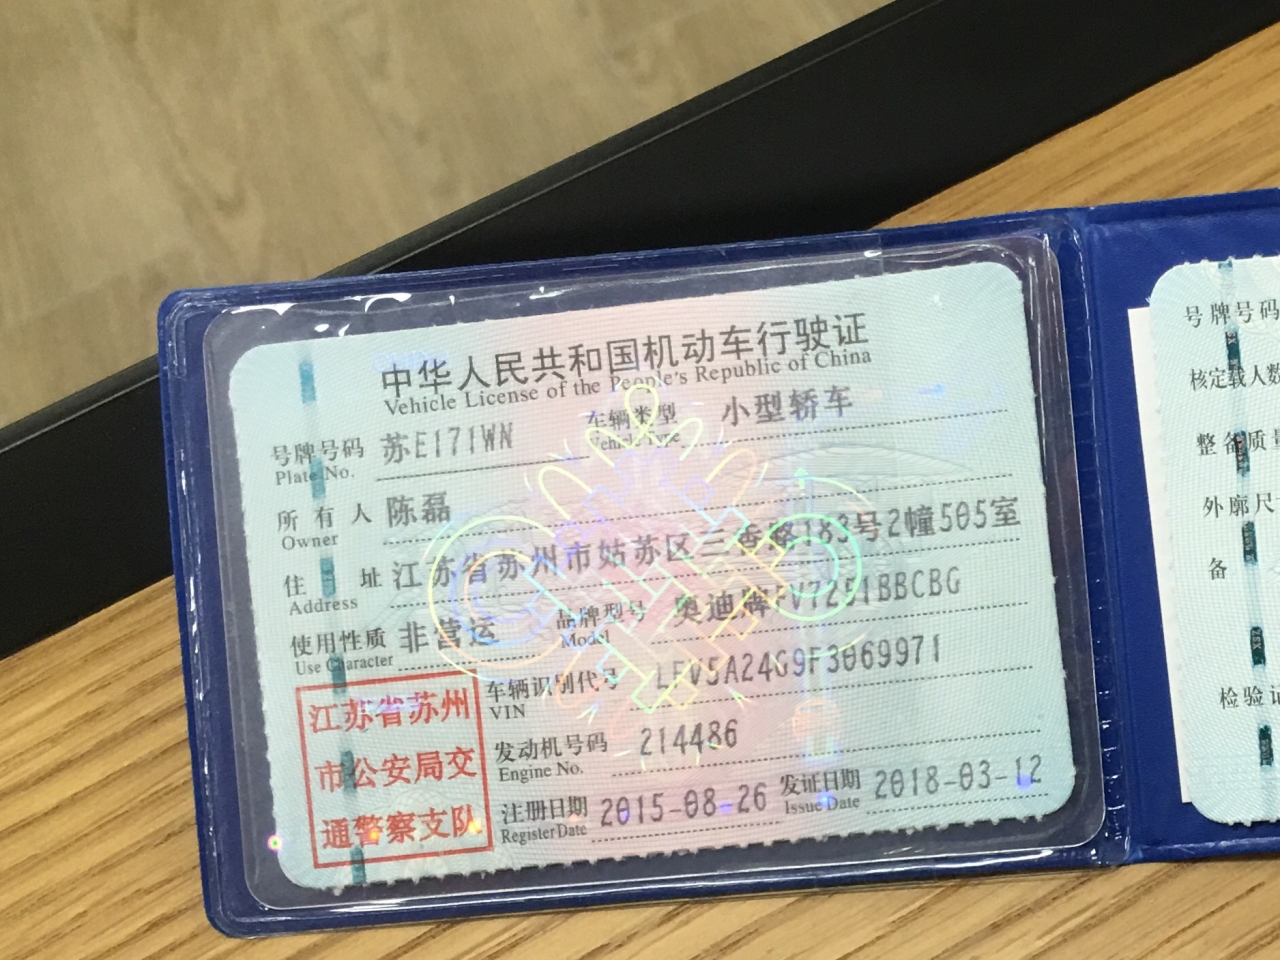 中华人民共和国机动车行驶证
Vehicle License of the People's Republic of China
号牌号码 苏E171WN 车辆类型 小型轿车
Plate No. Vehicle Type
所有人 陈磊
Owner
住址 江苏省苏州市姑苏区三香路183号2幢505室
Address
使用性质 非营运 品牌型号 奥迪牌FV7251BBCBG
Use Character Model
车辆识别代号 LFV5A24G9F3069971
VIN
发动机号码 214486
Engine No.
注册日期 2015-08-26 发证日期 2018-03-12
Register Date Issue Date
江苏省苏州
市公安局交
通警察支队
号牌号码
核定载人数
整备质量
外廓尺
备
检验记